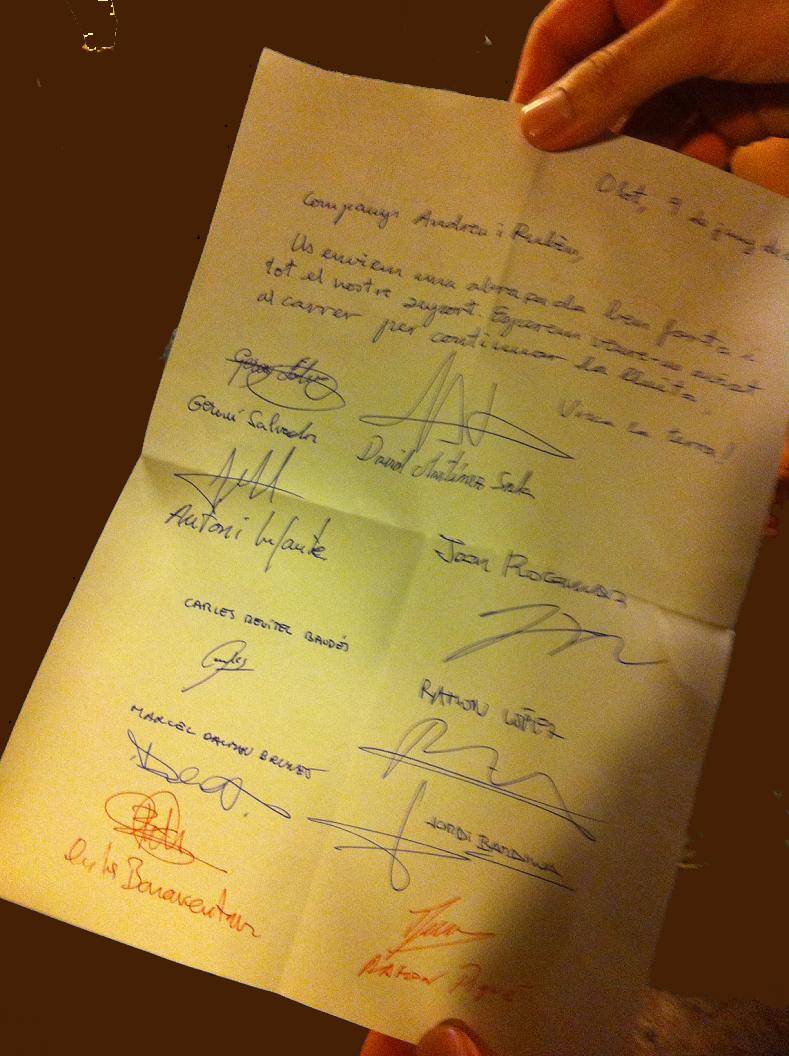 Olot, 9 de juny de
Companys Andreu i Rubèn,
Us enviem una abraçada ben forta i
tot el nostre suport. Esperem veure-us aviat
al carrer per continuar la lluita.
Visca la terra!
Germà Salvador
David Martínez Sala
Antoni Infante
Joan Rocamora
CARLES BENÍTEZ BAUDÉS
Carles
RAMON LÓPEZ
MARCEL DALMAU BRUNET
JORDI
Bonaventura